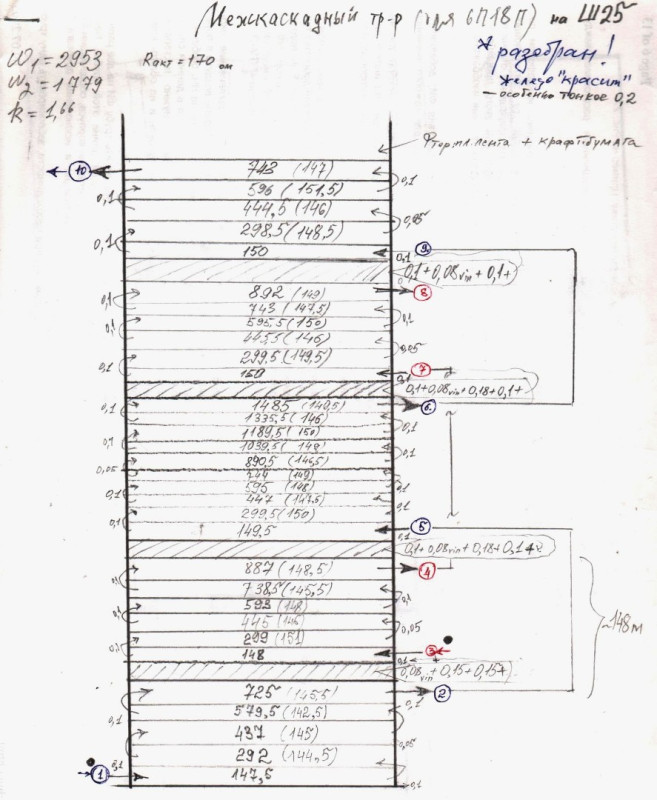 Межкаскадный тр-р (для 6П18П) на Ш25
W1 = 2953
W2 = 1779
k = 1,66
Rакт = 170 ом
* разобран!
железо "красит"
— особенно тонкое 0,2
Фторпл. лента + крафтбумага
10
743 (147)
0,1
596 (151,5)
0,1
444,5 (146)
0,05
298,5 (148,5)
0,1
150
9
0,1
0,1 + 0,08 vin + 0,1 +
892 (149)
8
0,1
743 (147,5)
0,1
595,5 (150)
0,1
445,5 (146)
0,05
299,5 (149,5)
0,1
150
7
0,1
0,1 + 0,08 vin + 0,18 + 0,1 +
1485 (149,5)
6
0,1
1335,5 (146)
0,1
1189,5 (150)
0,1
1039,5 (148)
0,1
890,5 (146,5)
0,05
744 (149)
595 (148)
0,1
0,1
447 (147,5)
0,1
299,5 (150)
0,1
149,5
5
0,1
0,1 + 0,08 vin + 0,18 + 0,1 +
887 (148,5)
4
0,1
738,5 (145,5)
0,1
593 (148)
0,1
445 (146)
0,05
299 (151)
0,1
148
3
0,1
0,08 vin + 0,15 + 0,15 +
~148м
725 (145,5)
2
579,5 (142,5)
0,1
0,1
437 (145)
0,05
292 (144,5)
0,1
147,5
1
0,1